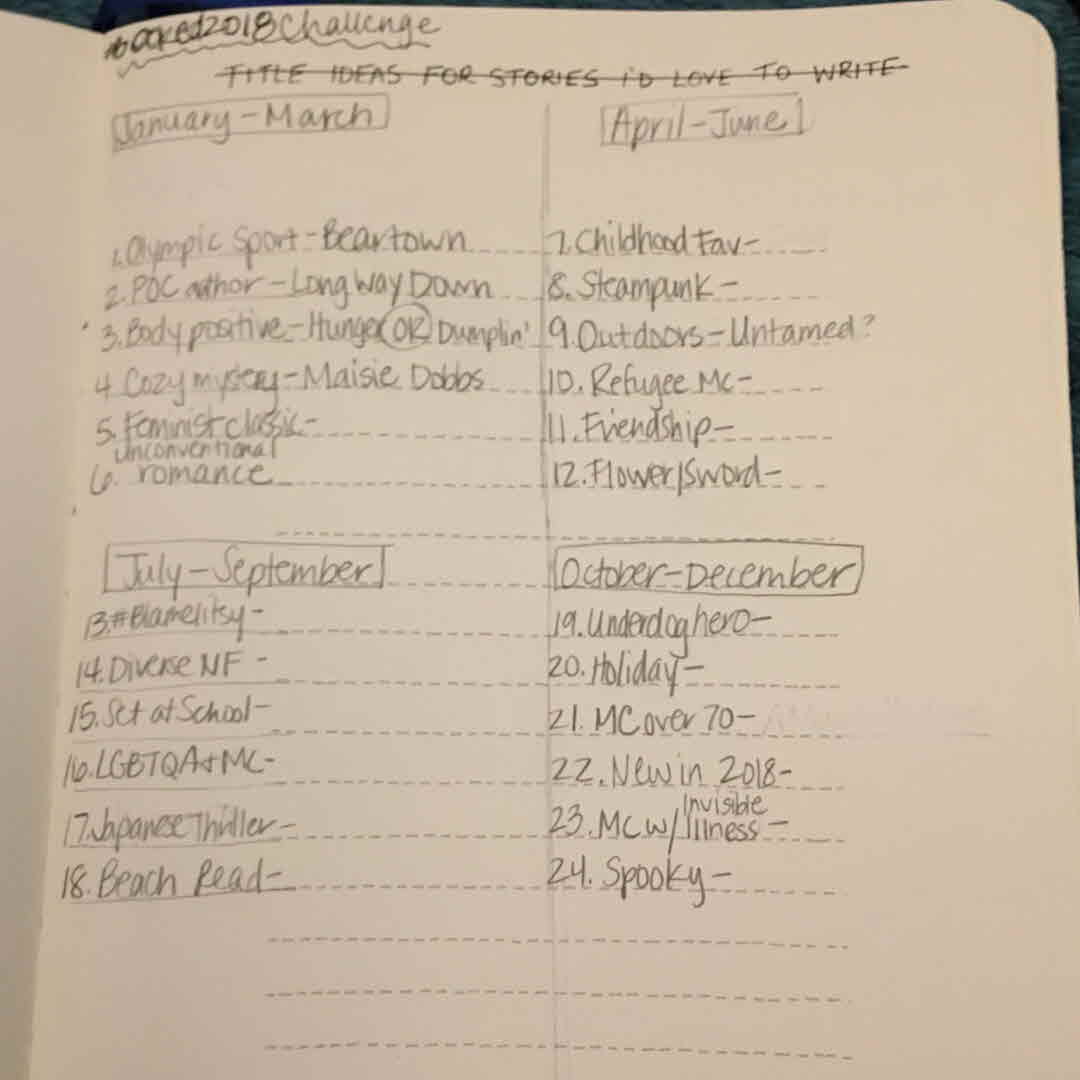 #booked2018Challenge
TITLE IDEAS FOR STORIES I'D LOVE TO WRITE
January-March
1. Olympic Sport-Beartown
2. POC author-Long Way Down
3. Body positive-Hunger OR Dumplin'
4. Cozy mystery-Maisie Dobbs
5. Feminist classic-
6. unconventional
romance
April-June
7. Childhood Fav-
8. Steampunk-
9. Outdoors-Untamed?
10. Refugee MC-
11. Friendship-
12. Flower/Sword-
July-September
13. #Blamelitsy-
14. Diverse NF -
15. Set at School-
16. LGBTQA+MC-
17. Japanese Thriller-
18. Beach Read-
October-December
19. Underdog hero-
20. Holiday-
21. MC over 70-
22. New in 2018-
23. MC w/ Invisible
Illness -
24. Spooky-